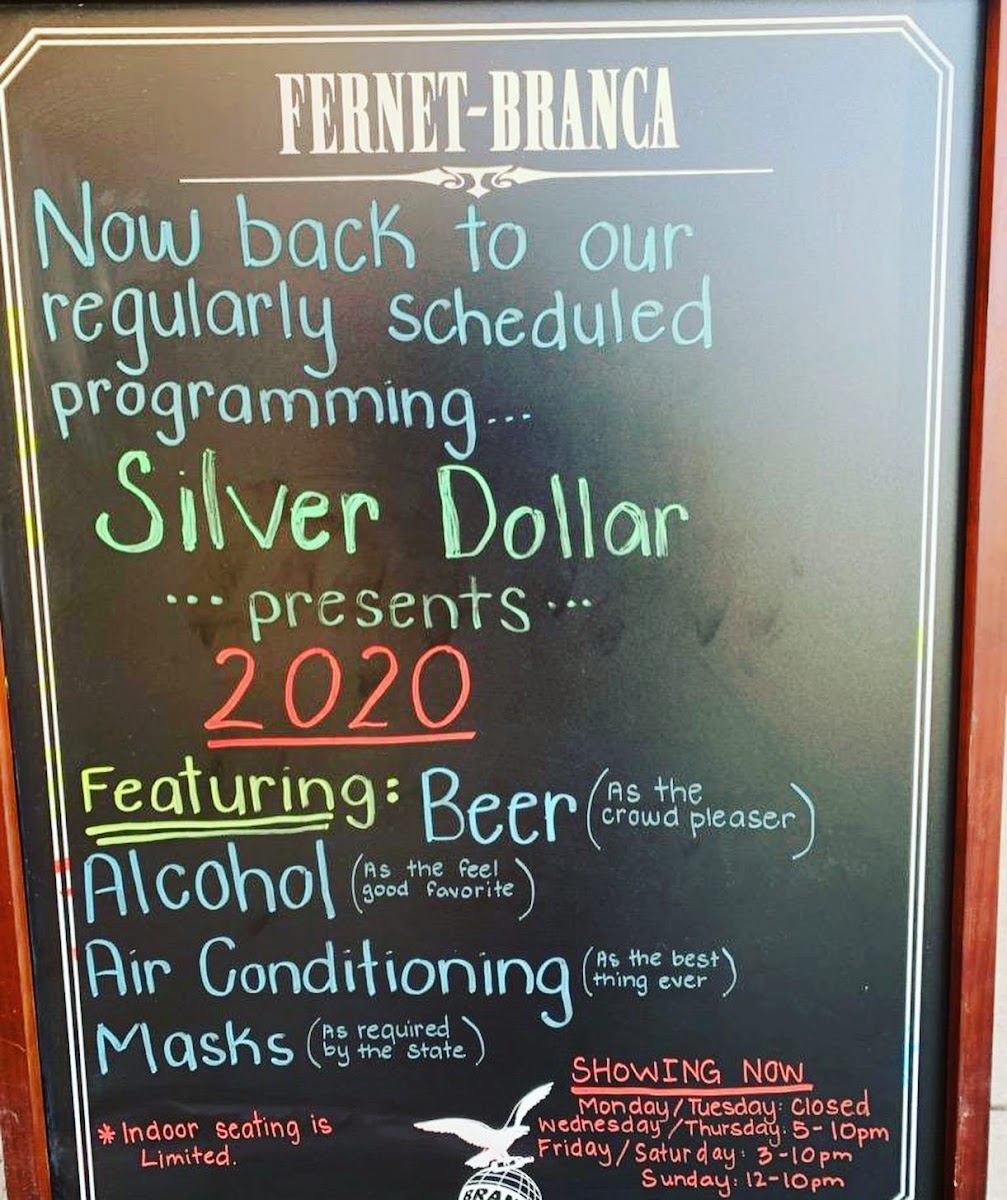 FERNET-BRANCA
Now back to our
regularly scheduled
programming...
Silver Dollar
... presents ...
2020
Featuring: Beer (As the crowd pleaser)
Alcohol (As the feel good favorite)
Air Conditioning (As the best thing ever)
Masks (As required by the state)
* Indoor seating is
Limited.
SHOWING NOW
Monday/Tuesday: Closed
Wednesday/Thursday: 5-10pm
Friday/Saturday: 3-10pm
Sunday: 12-10pm